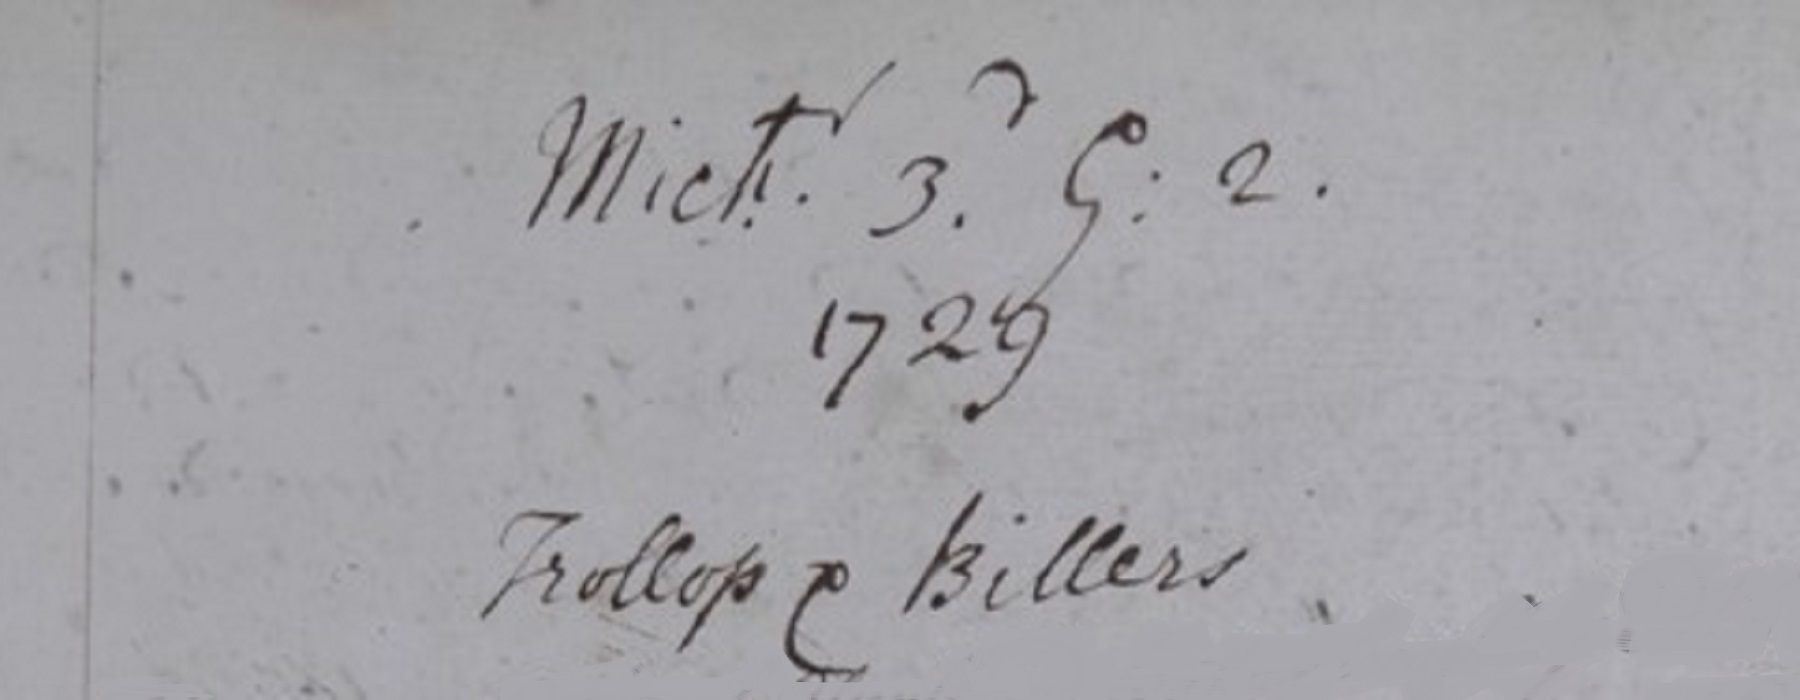 Mich. 3. G: 2.
1729
Trollop & Billers